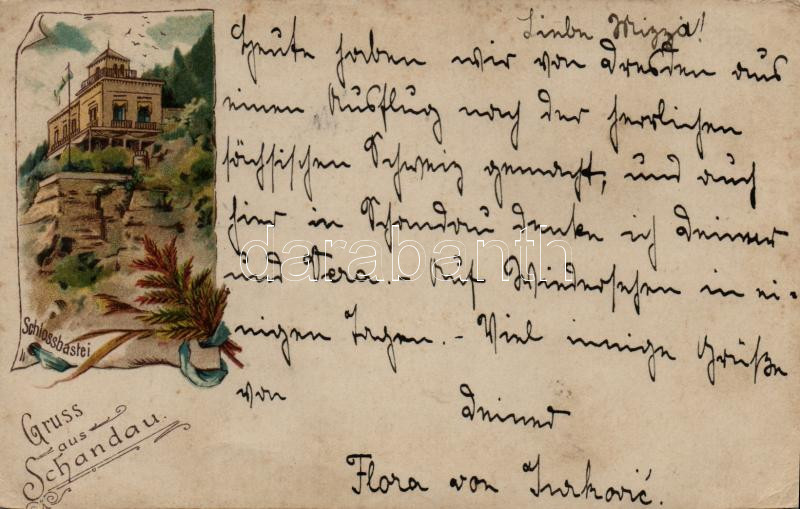 Liebe Mizza!
Heute haben wir von Dresden aus
einen Ausflug nach der herrlichen
sächsischen Schweiz gemacht, und auch
hier in Schandau denke ich deiner
und Vera. - Auf Wiedersehen in ei-
nigen Tagen. - Viel innige Grüße
von deiner
Flora von Jurković.
Schlossbastei
Gruss
aus
Schandau.
darabanth